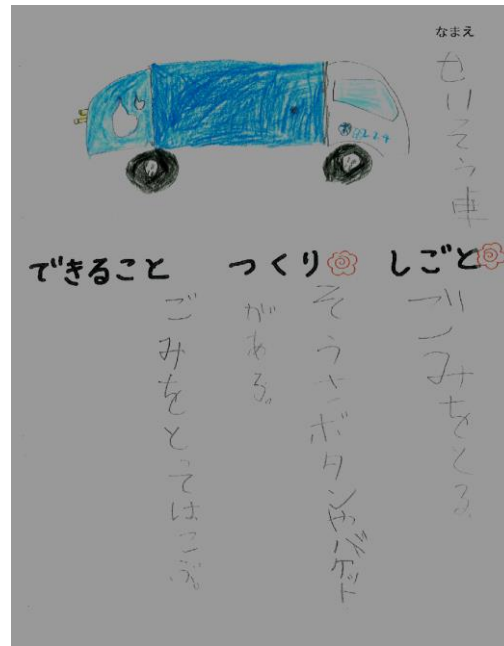 なまえ
せいそう車
しごと
ごみをとる。
つくり
そうさボタンやバケット
がある。
できること
ごみをとってはこぶ。